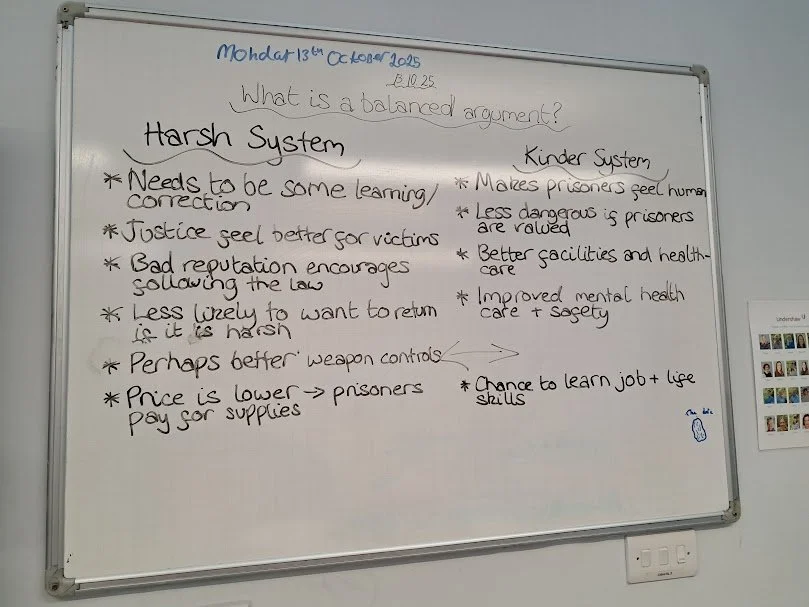 Monday 13th October 2025
13.10.25
What is a balanced argument?
Harsh System
* Needs to be some learning/
correction
* Justice feel better for victims
* Bad reputation encourages
following the law
* Less likely to want to return
if it is harsh
* Perhaps better weapon controls
* Price is lower → prisoners
pay for supplies
Kinder System
* Makes prisoners feel human
* Less dangerous if prisoners
are valued
* Better facilities and health-
care
* Improved mental health
care + safety
* Chance to learn job + life
skills
Undershaw